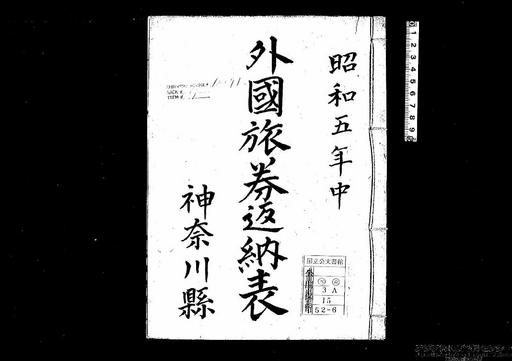 昭和五年中
外國旅券返納表
神奈川縣
国立公文書館
3 A
15
52-6
0 1 2 3 4 5 6 7 8 9